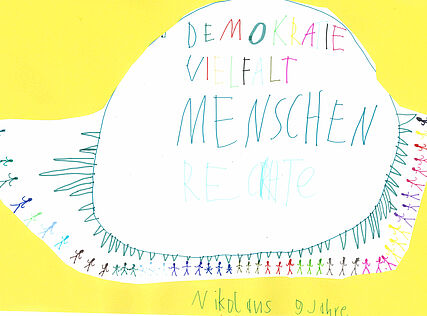 DEMOKRAIE
VIELFALT
MENSCHEN
RECHTe
Nikolaus 9 Jahre